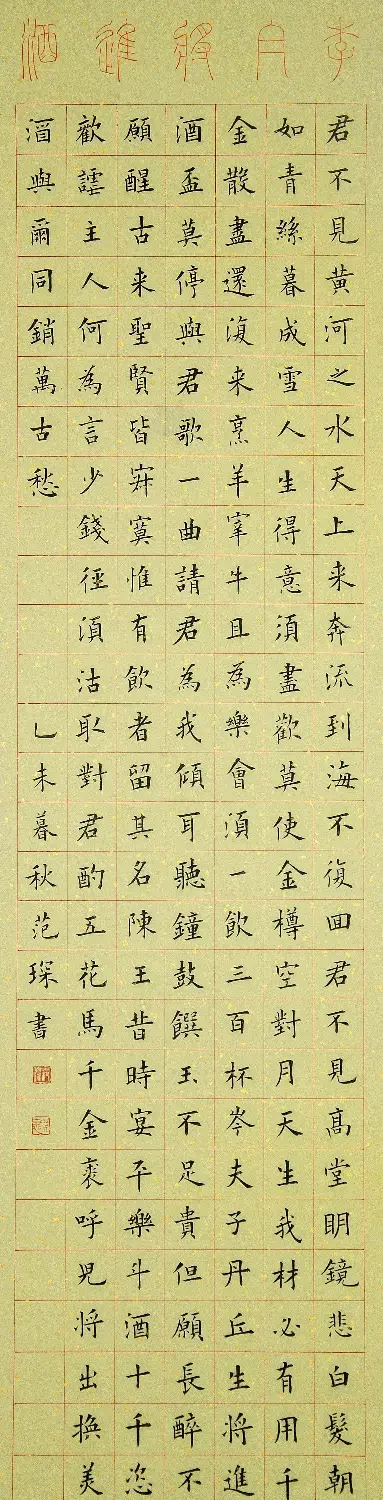 李白將進酒
君不見黃河之水天上来奔流到海不復回君不見髙堂眀鏡悲白髮朝
如青絲暮成雪人生得意須盡歡莫使金樽空對月天生我材必有用千
金散盡還復来烹羊宰牛且為樂會須一飲三百杯岑夫子丹丘生將進
酒盃莫停與君歌一曲請君為我傾耳聽鐘鼓饌玉不足貴但願長醉不
願醒古来聖賢皆寂寞惟有飲者留其名陳王昔時宴平樂斗酒十千恣
歡謔主人何為言少錢徑須沽取對君酌五花馬千金裘呼兒將出換美
酒與爾同銷萬古愁
乙未暮秋范琛書